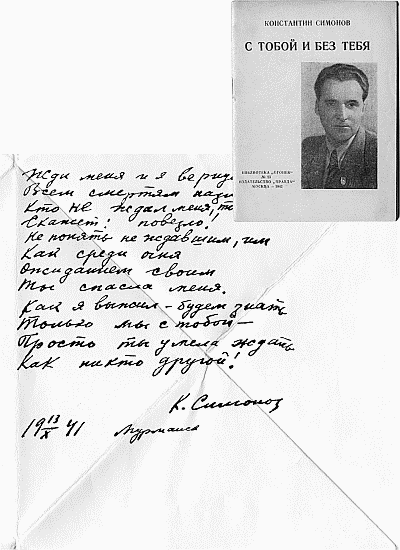 КОНСТАНТИН СИМОНОВ
С ТОБОЙ И БЕЗ ТЕБЯ
БИБЛИОТЕКА „ОГОНЕК“
ИЗДАТЕЛЬСТВО „ПРАВДА“
МОСКВА — 1942
Жди меня и я верну
Всем смертям наз
Кто не ждал меня, т
Скажет: повезло.
Не понять не ждавшим, им
Как среди огня
Ожиданием своим
Ты спасла меня.
Как я выжил – будем знать
Только мы с тобой —
Просто ты умела ждать
Как никто другой!
К. Симонов
19 13/X 41 Мурманск